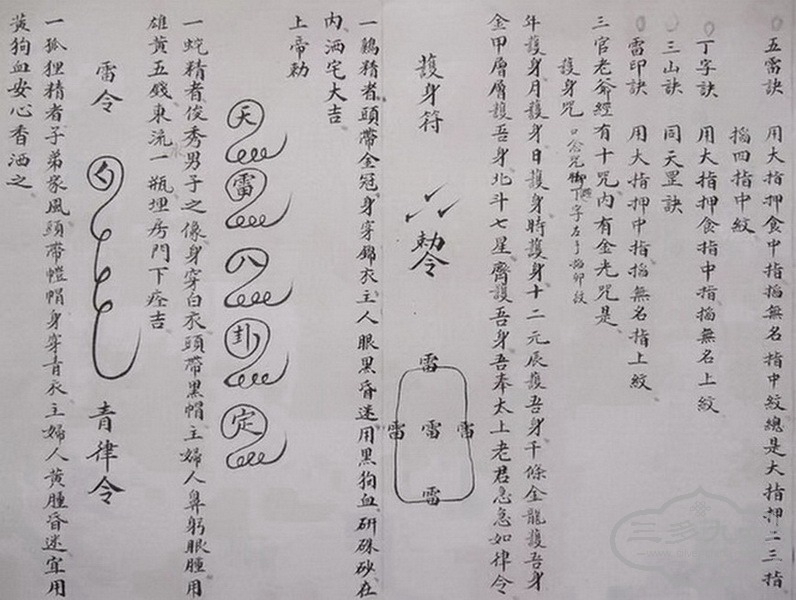 五雷訣 用大指押食中指掐無名指中紋總是大指押二三指
掐四指中紋
丁字訣 用大指押食指中指掐無名上紋
三山訣 同天罡訣
雷印訣 用大指押中指掐無名指上紋
三官老爺經有十咒內有金光咒是
護身咒 口念咒腳丁字左手掐卯紋
年護身月護身日護身時護身十二元辰護吾身千條金龍護吾身
金甲層層護吾身北斗七星齊護吾身吾奉太上老君急急如律令
護身符
敕令
雷
雷 雷 雷
雷
一鷄精者頭帶金冠身穿錦衣主人眼黑昏迷用黑狗血研硃砂在
內洒宅大吉
上帝勅
天
雷
八
卦
定
一蛇精者俊秀男子之像身穿白衣頭帶黑帽主婦人鼻躬眼腫用
雄黃五錢東流水一瓶埋房門下痊吉
雷令
青律令
一狐狸精者子弟家風頭帶幔帽身穿青衣主婦人黃腫昏迷宜用
黃狗血安心香洒之
三多九